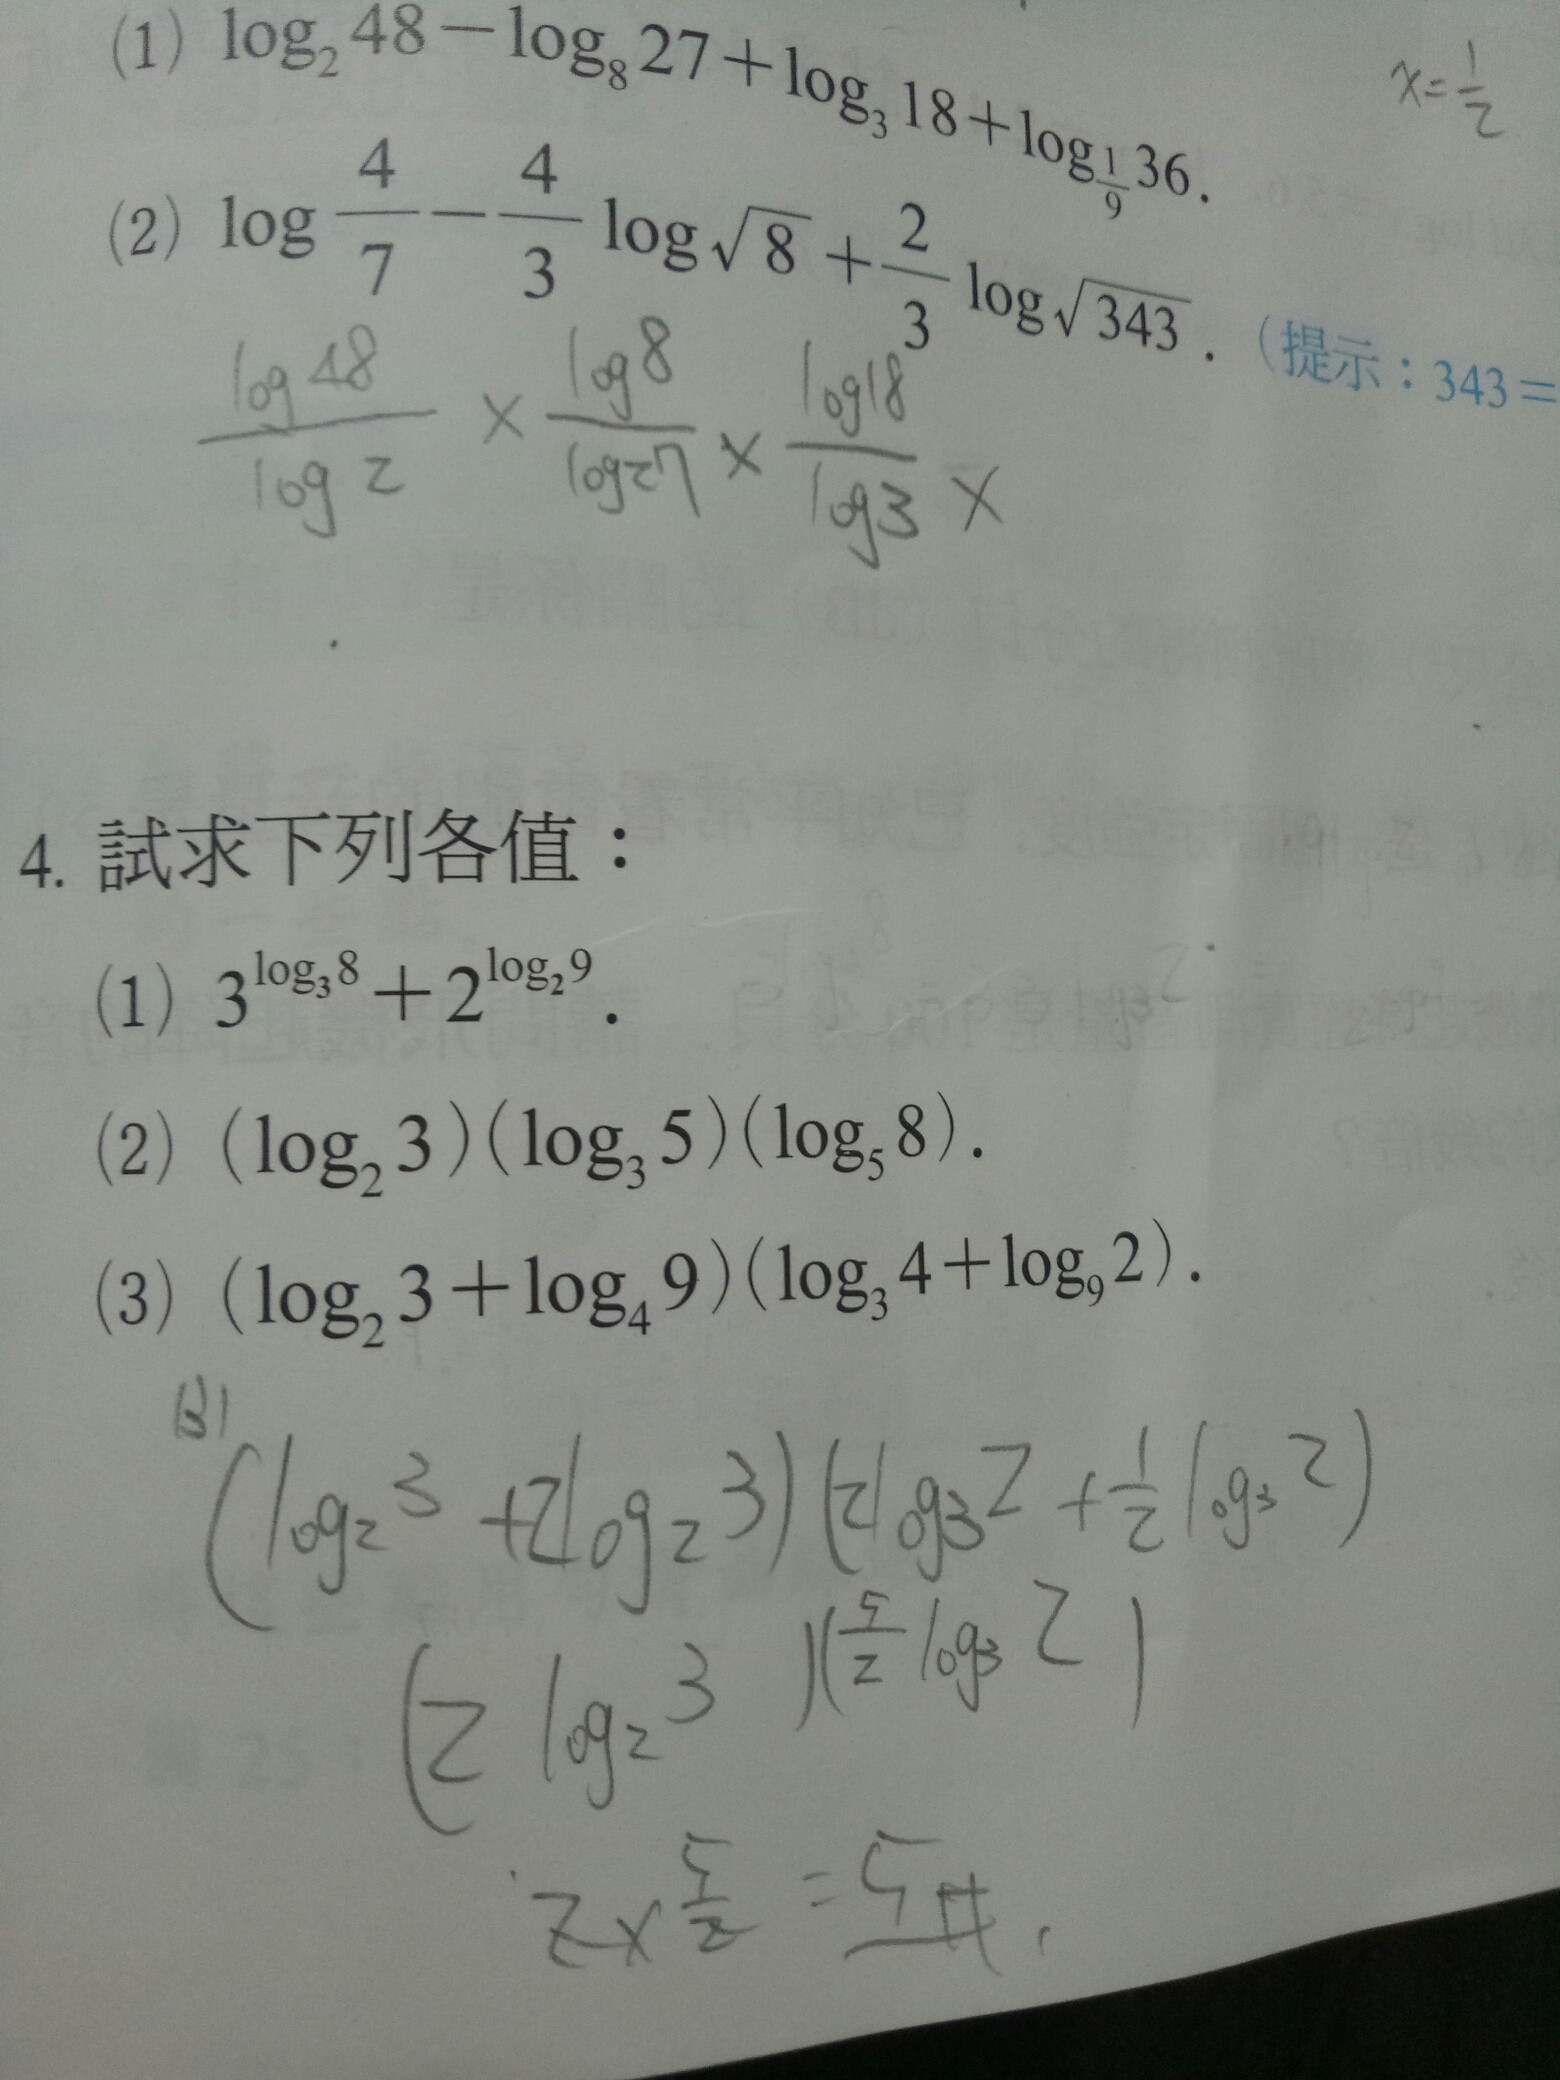 (1) log₂48－log₈27＋log₃18＋log_{1/9}36.
x=1/2
(2) log 4/7－4/3 log√8＋2/3 log√343. (提示：343＝
log48/log2 × log8/log27 × log18/log3 ×
4. 試求下列各值：
(1) 3^{log₃8}＋2^{log₂9}.
(2) (log₂3)(log₃5)(log₅8).
(3) (log₂3＋log₄9)(log₃4＋log₉2).
(log₂3 + 2log₂3)(2log₃2 + 1/2 log₃2)
(2 log₂3)(5/2 log₃2)
2×5/2 = 5#.